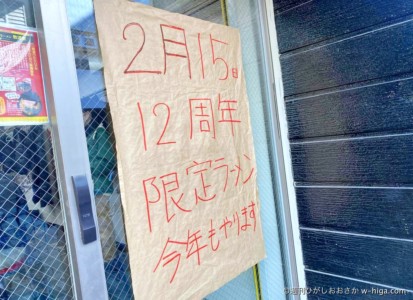 2月15日
12周年
限定ラーメン
今年もやります
©週刊ひがしおおさか w-higa.com